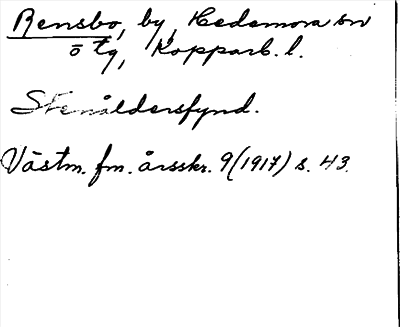 Rensbo, by, Hedemora sn
ö tg, Kopparb. l.
Stenåldersfynd.
Västm. fm. årsskr. 9 (1917) s. 43.